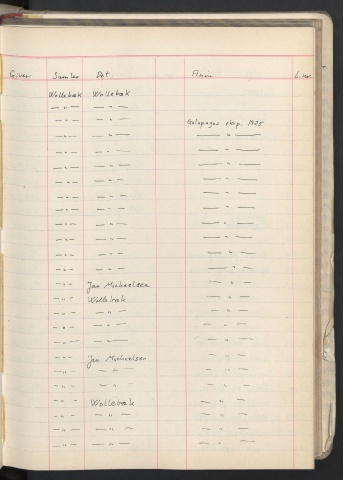 Giver Samler Det. Anm. L.nr.
Wollebæk Wollebæk
—"— —"—
—"— —"— Galapagos eksp. 1925
—"— —"— —"—
—"— —"— —"—
—"— —"— —"—
—"— —"— —"—
—"— —"— —"—
—"— —"— —"—
—"— —"— —"—
—"— —"— —"—
—"— —"— —"—
—"— —"— —"—
—"— Jan Michaelsen —"—
—"— Wollebæk —"—
—"— —"— —"—
—"— —"— —"—
—"— —"— —"—
—"— Jan Michaelsen —"—
—"— —"— —"—
—"— —"— —"—
—"— Wollebæk —"—
—"— —"— —"—
—"— —"— —"—
—"— —"— —"—